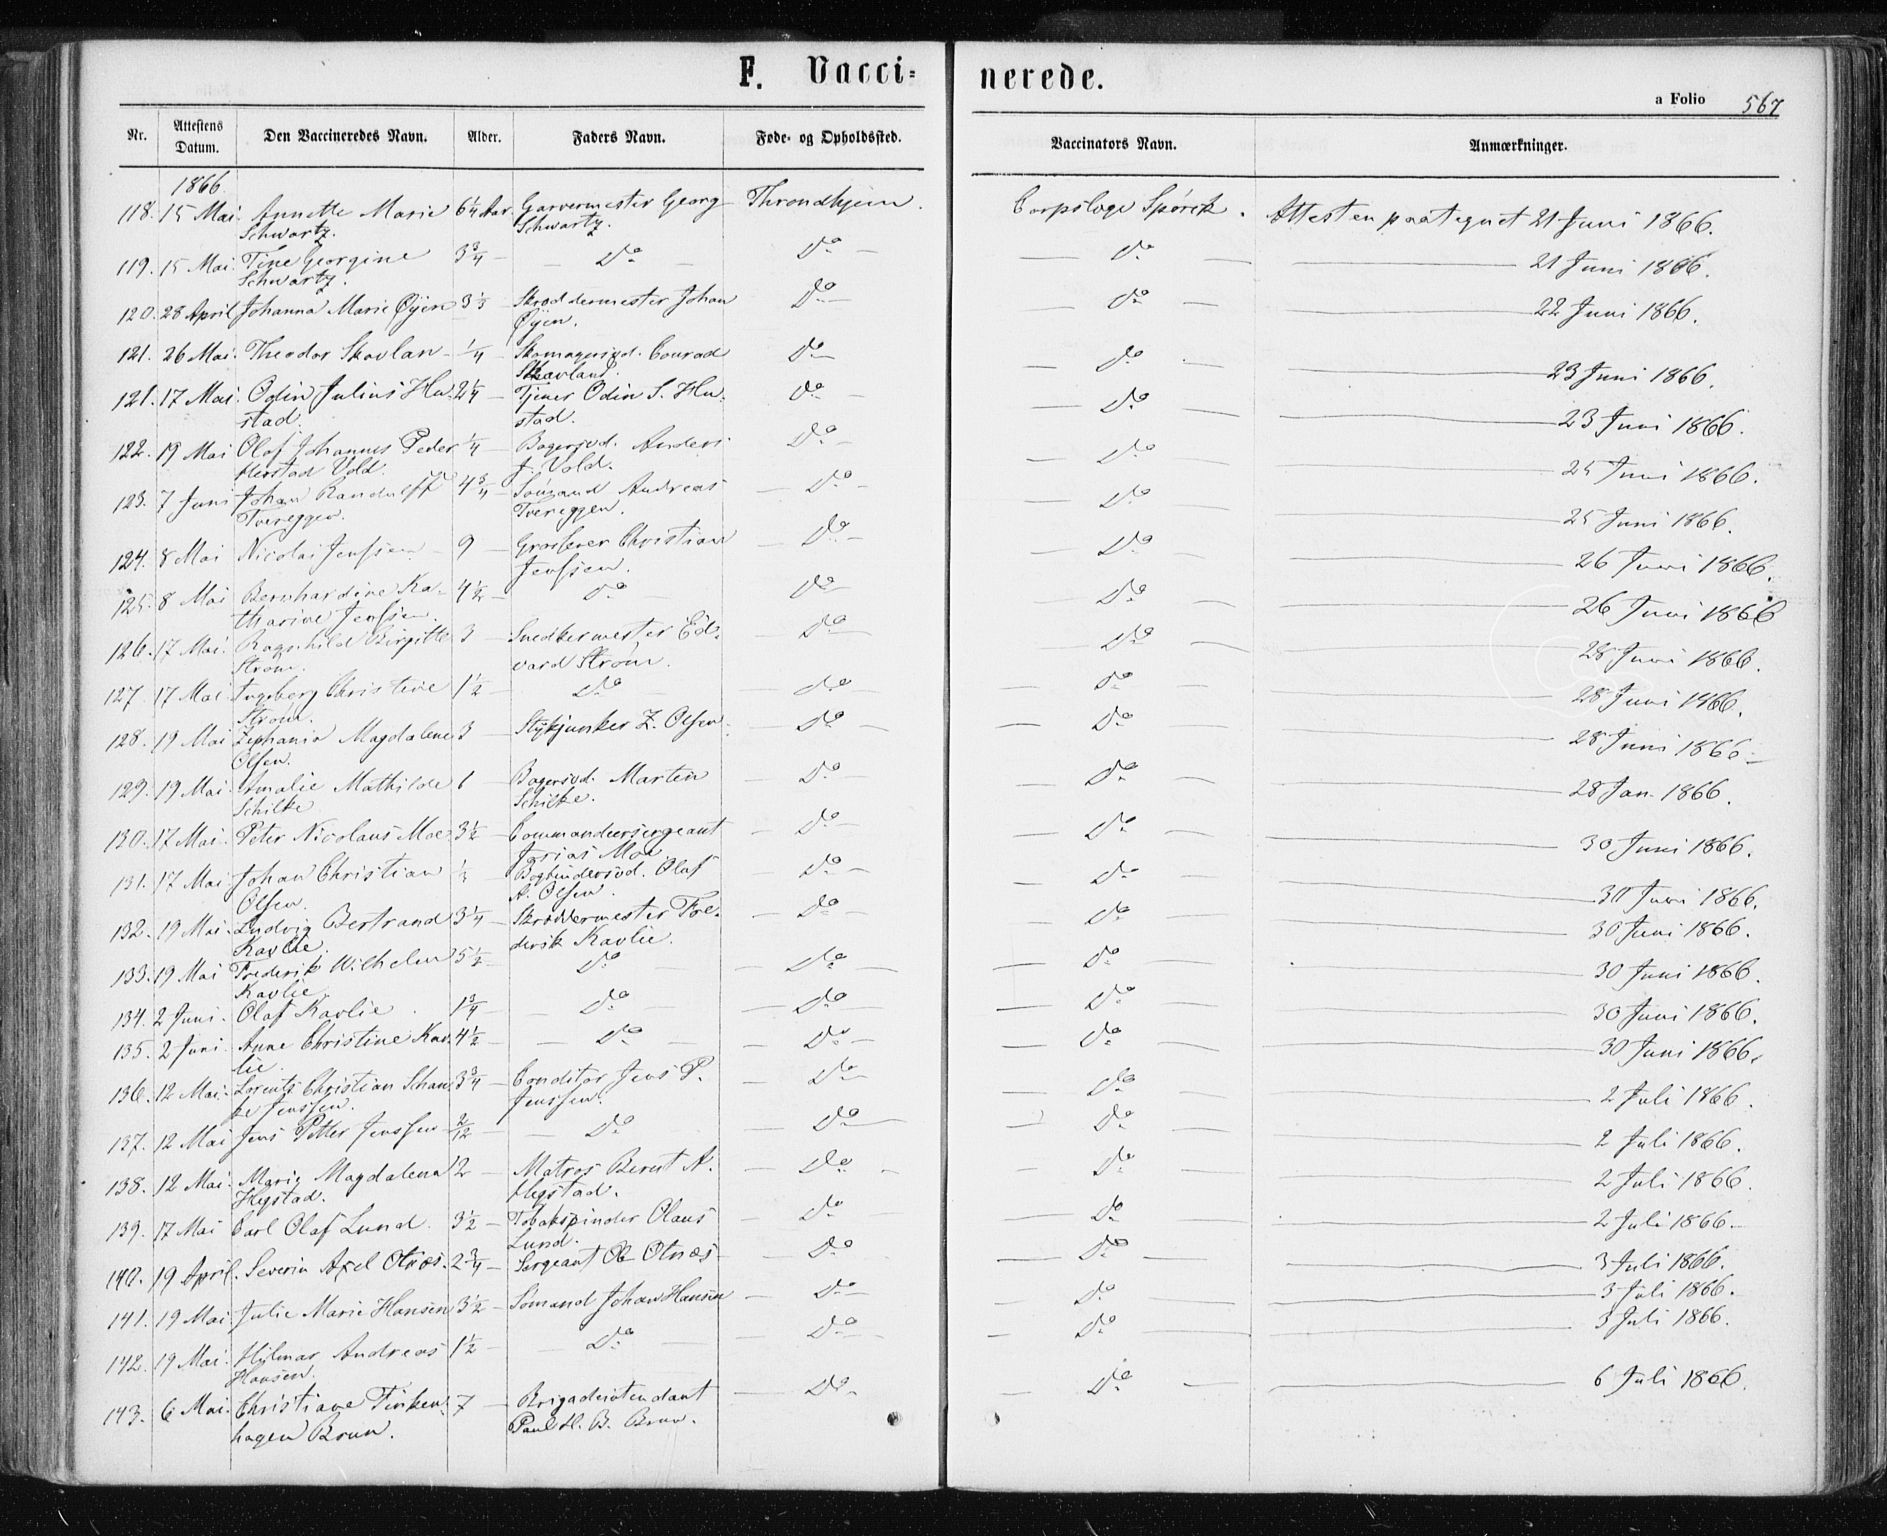 F. Vacci= nerede.
a Folio 567
Nr. Attestens Datum. Den Vaccineredes Navn. Alder. Faders Navn. Føde- og Opholdssted. Vaccinators Navn. Anmærkninger.
1866.
118. 15 Mai. Annette Marie 6 1/4 Aar. Garvermester Georg Throndhjem. Corpslæge Spørck. Attesten paategnet 21 Juni 1866.
Schwartz. Schwartz.
119. 15 Mai. Tine Georgine 3 3/4 — Do — Do — Do — 21 Juni 1866.
Schwartz.
120. 28 April Johanna Marie Øyen 3 1/3 Skræddermester Johan Do — Do — 22 Juni 1866.
Øyen.
121. 26 Mai. Theodor Skavlan 1/4 Skomagersvd. Conrad Do — Do — 23 Juni 1866.
Skavland.
121. 17 Mai. Odin Julius Hu- 2 1/4 Tjener Odin S. Hu- Do — Do — 23 Juni 1866.
stad. stad.
122. 19 Mai Olaf Johannes Peder 1/4 Bagersvd. Anders Do — Do — 25 Juni 1866.
Herstad Vold. J. Vold.
123. 7 Juni Johan Randulff 4 3/4 — Sømand Andreas — Do — Do — 25 Juni 1866.
Tvereggen. Tvereggen.
124. 8 Mai Nicolai Jenssen 9 — Grosserer Christian — Do — Do — 26 Juni 1866.
Jenssen.
125. 8 Mai Bernhardine Ka- 4 1/2 — Do — Do — Do — 26 Juni 1866
tharine Jenssen.
126. 17 Mai. Ragnhild Birgitte 3 — Snedkermester Ed- — Do — Do — 28 Juni 1866.
Strøm. vard Strøm.
127. 17 Mai Ingeborg Christine 1 1/2 — Do — Do — Do — 28 Juni 1866.
Strøm.
128. 19 Mai Zephania Magdalene 3 — Stykjunker Z. Olsen. — Do — Do — 28 Juni 1866.
Olsen.
129. 19 Mai. Amalie Mathilde 6 — Bagersvd. Martin — Do — Do — 28 Jan. 1866.
Schilke Schilke.
130. 17 Mai. Peter Nicolaus Moe 3 1/2 — Commandeersergeant — Do — Do — 30 Juni 1866.
Josias Moe
131. 17 Mai Johan Christian Bogbindersvd. Olaf — Do — Do — 30 Juni 1866.
Olsen. A. Olsen.
132. 19 Mai. Ludvig Bertrand 3 1/4 — Skræddermester Fre- — Do — Do — 30 Juni 1866.
Kavlie. derik Kavlie.
133. 19 Mai Frederik Wilhelm 5 1/2 Do — Do — Do — 30 Juni 1866.
Kavlie.
134. 2 Juni. Olaf Kavlie. 1 3/4 — Do — Do — Do — 30 Juni 1866.
135. 2 Juni. Anne Christine Kav- 4 1/2 — Do — Do — Do — 30 Juni 1866.
lie.
136. 12 Mai. Lorents Christian Schan- 3 3/4 — Conditor Jens P. — Do — Do — 2 Juli 1866.
ke Jenssen. Jenssen.
137. 12 Mai Jens Petter Jenssen 2/12 — Do — Do — Do — 2 Juli 1866.
138. 12 Mai. Marie Magdalena 12 — Matros Bernt A. — Do — Do — 2 Juli 1866.
Hegstad. Hegstad.
139. 17 Mai Carl Olaf Lund. 3 1/2 — Tobakspinder Olaus — Do — Do — 2 Juli 1866.
Lund.
140. 19 April. Severin Axel Otnæs. 2 3/4 — Sergeant Ole Otnæs — Do — Do — 3 Juli 1866.
141. 19 Mai Julie Marie Hansen 3 1/2 — Sømand Johan Hansen — Do — Do — 3 Juli 1866.
142. 19 Mai. Hilmar Andreas 1 1/2 — Do — Do — Do — 3 Juli 1866.
Hansen.
143. 6 Mai. Christiane Finken- 7 — Brigadeintendant — Do — Do — 6 Juli 1866.
hagen Brun. Paul H. B. Brun.